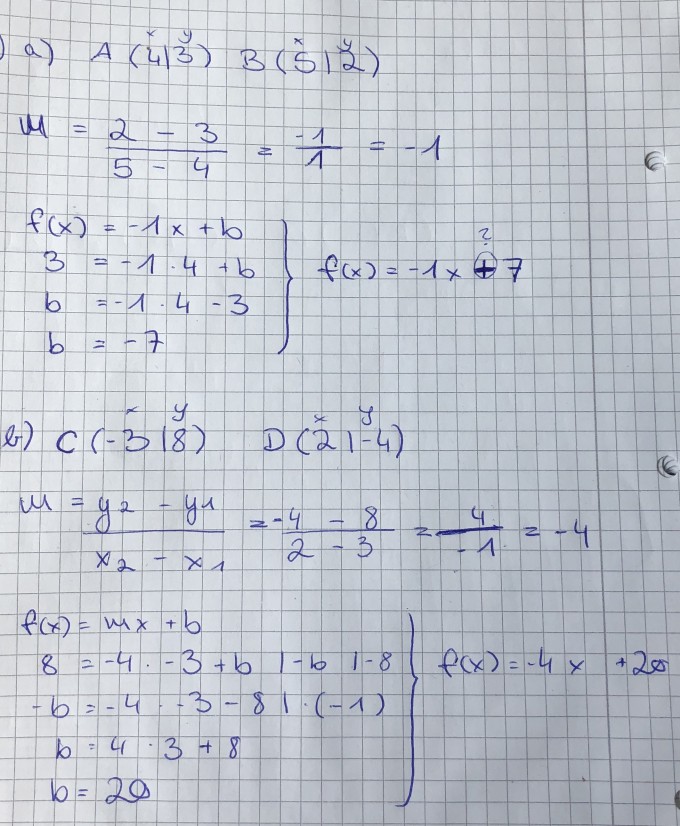 ) a) A (4|3) B (5|2)
x y x y
m = (2 - 3)/(5 - 4) = -1/1 = -1
f(x) = -1x + b
3 = -1 · 4 + b
b = -1 · 4 - 3
b = -7
?
f(x) = -1x + 7
x y x y
b) C (-3|8) D (2|-4)
m = (y2 - y1)/(x2 - x1) = (-4 - 8)/(2 - 3) = 4/-1 = -4
f(x) = mx + b
8 = -4 · -3 + b |-b |-8
-b = -4 · -3 - 8 | · (-1)
b = 4 · 3 + 8
b = 20
f(x) = -4x + 20